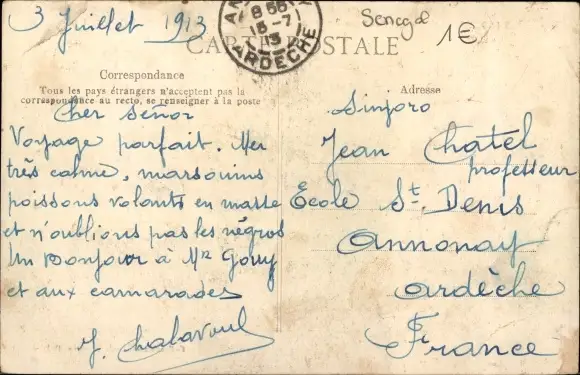 3 Juillet 1913
Senegal
1€
CARTE POSTALE
8 55
15-7
13
ARDECHE
Correspondance
Tous les pays étrangers n'acceptent pas la
correspondance au recto, se renseigner à la poste
Cher Senor
Voyage parfait. Mer
très calme, marsouins
poissons volants en masse
et n'oublions pas les négros
Un Bonjour à Mr Gouy
et aux camarades
Adresse
Sinjoro
Jean Chatel
professeur
École St. Denis
Annonay
Ardèche
France